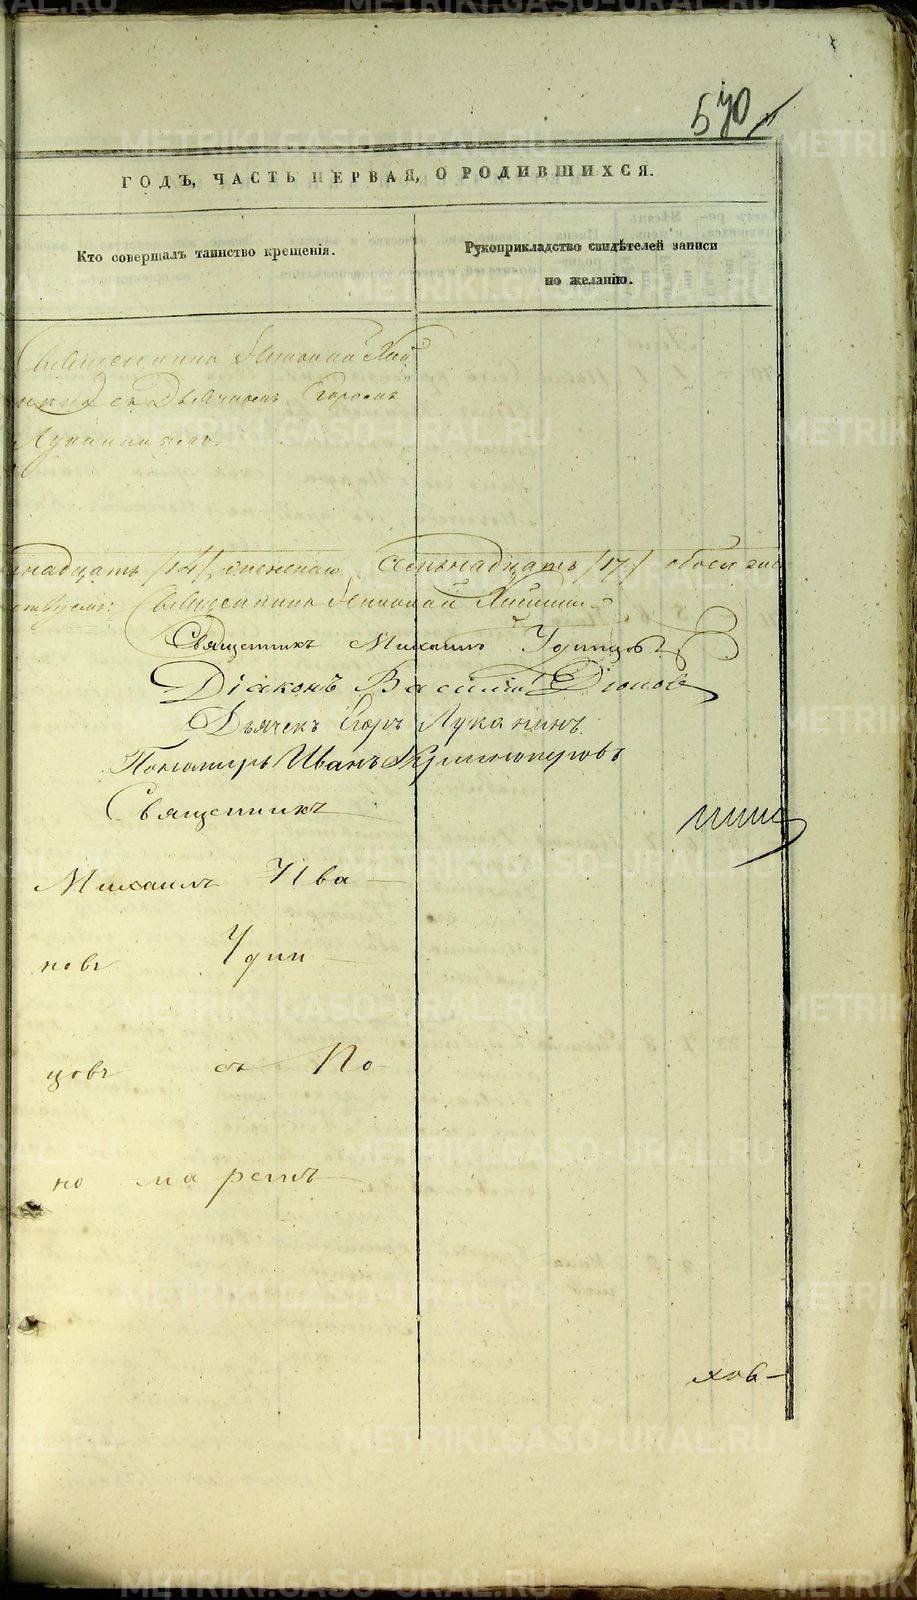 570
ГОДЪ, ЧАСТЬ ПЕРВАЯ, О РОДИВШИХСЯ.
Кто совершалъ таинство крещенія.
Рукоприкладство свидѣтелей записи по желанію.
Священникъ
съ Дьячкомъ Егоромъ
Луканинымъ.
надцать /14/, женскаго семьнадцать /17/ обоего
Священникъ Николай
Священникъ Михаилъ Удинцовъ
Діаконъ Василій Діоновъ
Дьячекъ Егоръ Луканинъ.
Пономарь Иванъ
Священникъ
Михаилъ Ива-
новъ Удин-
цовъ съ По-
но маремъ
хов-
METRIKI.GASO-URAL.RU